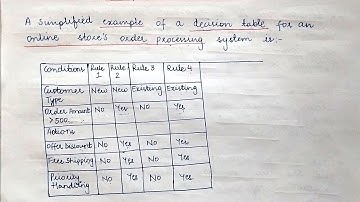 A simplified example of a decision table for an
online store's order processing system is:-
Conditions Rule 1 Rule 2 Rule 3 Rule 4
Customer Type New New Existing Existing
Order Amount >500 No Yes No Yes
Actions
Offer Discount No Yes No Yes
Free Shipping No Yes No Yes
Priority Handling No Yes No Yes